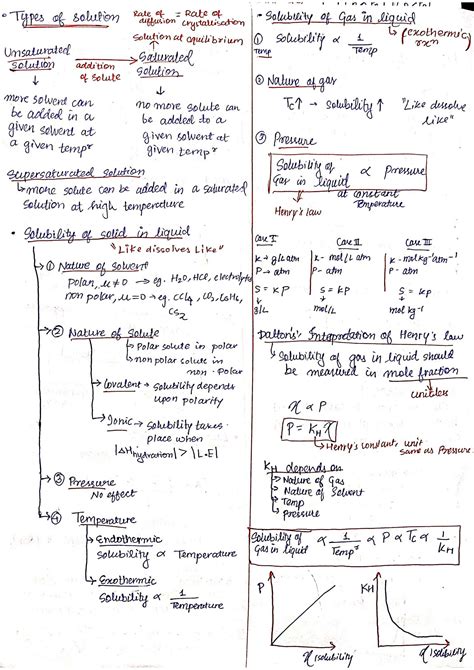 • Types of solution
Rate of = Rate of
diffusion crystallisation
Solution at equilibrium
Unsaturated solution → addition of solute → Saturated solution
more solvent can
be added in a
given solvent at
a given tempr
no more solute can
be added to a
given solvent at
given tempr
Supersaturated solution
↳ more solute can be added in a saturated
solution at high temperature
• Solubility of solid in liquid
"Like dissolves Like"
① Nature of solvent
Polar, μ≠0 → eg. H2O, HCl, electrolyte
non polar, μ=0 → eg. CCl4, CO2, C6H6,
CS2
② Nature of Solute
Polar solute in polar
non polar solute in
non-polar
Covalent - Solubility depends
upon polarity
Ionic - solubility takes
place when
|ΔHhydration| > |L.E|
③ Pressure
No effect
④ Temperature
Endothermic
solubility ∝ Temperature
Exothermic
Solubility ∝ 1/Temperature
• Solubility of Gas in liquid
↳ (exothermic rxn)
① Solubility ∝ 1/Temp
Temp
② Nature of gas
Tc↑ → solubility↑ "Like dissolve
like"
③ Pressure
Solubility of
Gas in liquid ∝ pressure
at constant
temperature
Henry's law
Case I Case II Case III
x → g/L atm x - mol/L atm x - mol kg-1 atm-1
P → atm P - atm P - atm
S = KP S = KP S = KP
g/L mol/L mol kg-1
Dalton's Intepretation of Henry's law
↳ Solubility of gas in liquid should
be measured in mole fraction
unitless
x ∝ P
P = KH x
Henry's constant, unit
same as Pressure.
KH depends on
Nature of Gas
Nature of Solvent
Temp
pressure
Solubility of
Gas in liquid ∝ 1/Tempr ∝ P ∝ Tc ∝ 1/KH
P
x (solubility)
KH
x (solubility)